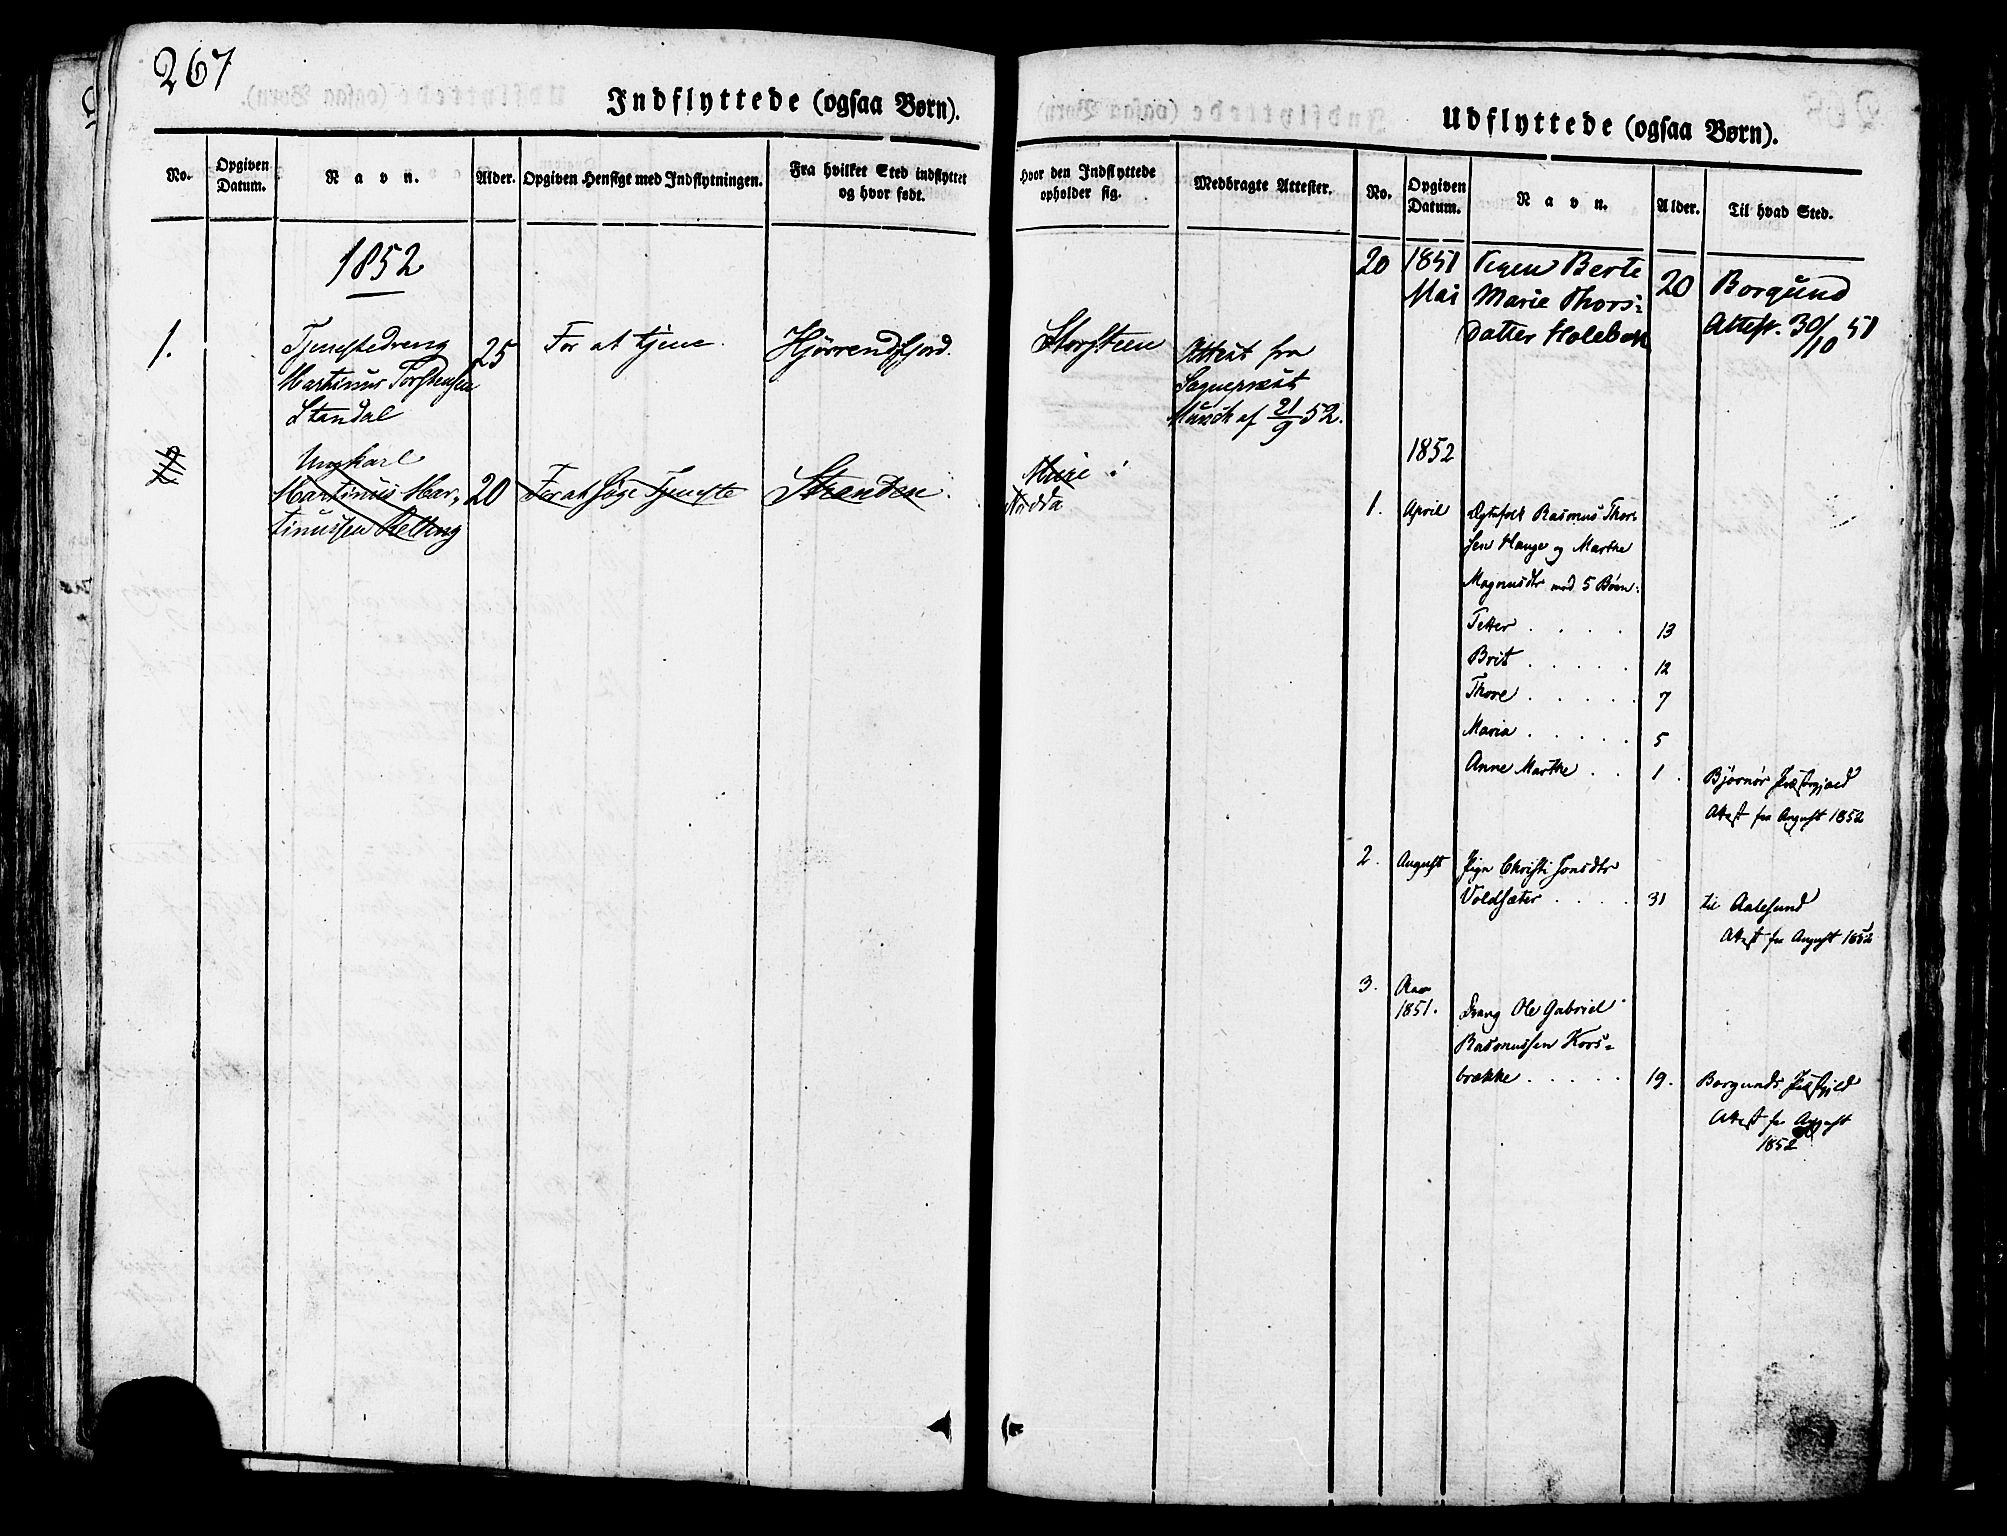 267
Indflyttede (ogsaa Børn).
No.
Opgiven Datum.
Navn.
Alder.
Opgiven Hensigt med Indflytningen.
Fra hvilket Sted indflyttet og hvor født.
1852
1.
Tjenestedreng
Martinus Torstensen
Standal
25
For at tjene
Hjørrendfjord.
Ungkarl
Martinus Mar-
tinussen
20
For at søge Tjeneste
Stranden.
Udflyttede (ogsaa Børn).
Hvor den Indflyttede opholder sig.
Medbragte Attester.
No.
Opgiven Datum.
Navn.
Alder.
Til hvad Sted.
Storsteen
Attest fra
Sognepræst
Munch af 21/9 52.
Nordda
20
1851
Mai
Pigen Berte
Marie Thors-
datter Holebek
20
Borgund
Attest. 30/10 51
1852
1.
April
Ægtefolk Rasmus Thor-
sen Hauge og Marthe
Magnusdtr med 5 Børn:
Petter . . . . 13
Brit . . . . . 12
Thore . . . . . 7
Maria . . . . . 5
Anne Marthe . . 1.
Bjørnør Præstegjæld
Attest fra August 1852
2.
August
Pige Christi Jonsdtr
Voldsæter . . . . 31
til Aalesund
Attest fra August 1852
3.
1851.
Dreng Ole Gabriel
Rasmussen Kors-
brække . . . . . 19.
Borgunds Præstgjeld
Attest fra August
1852